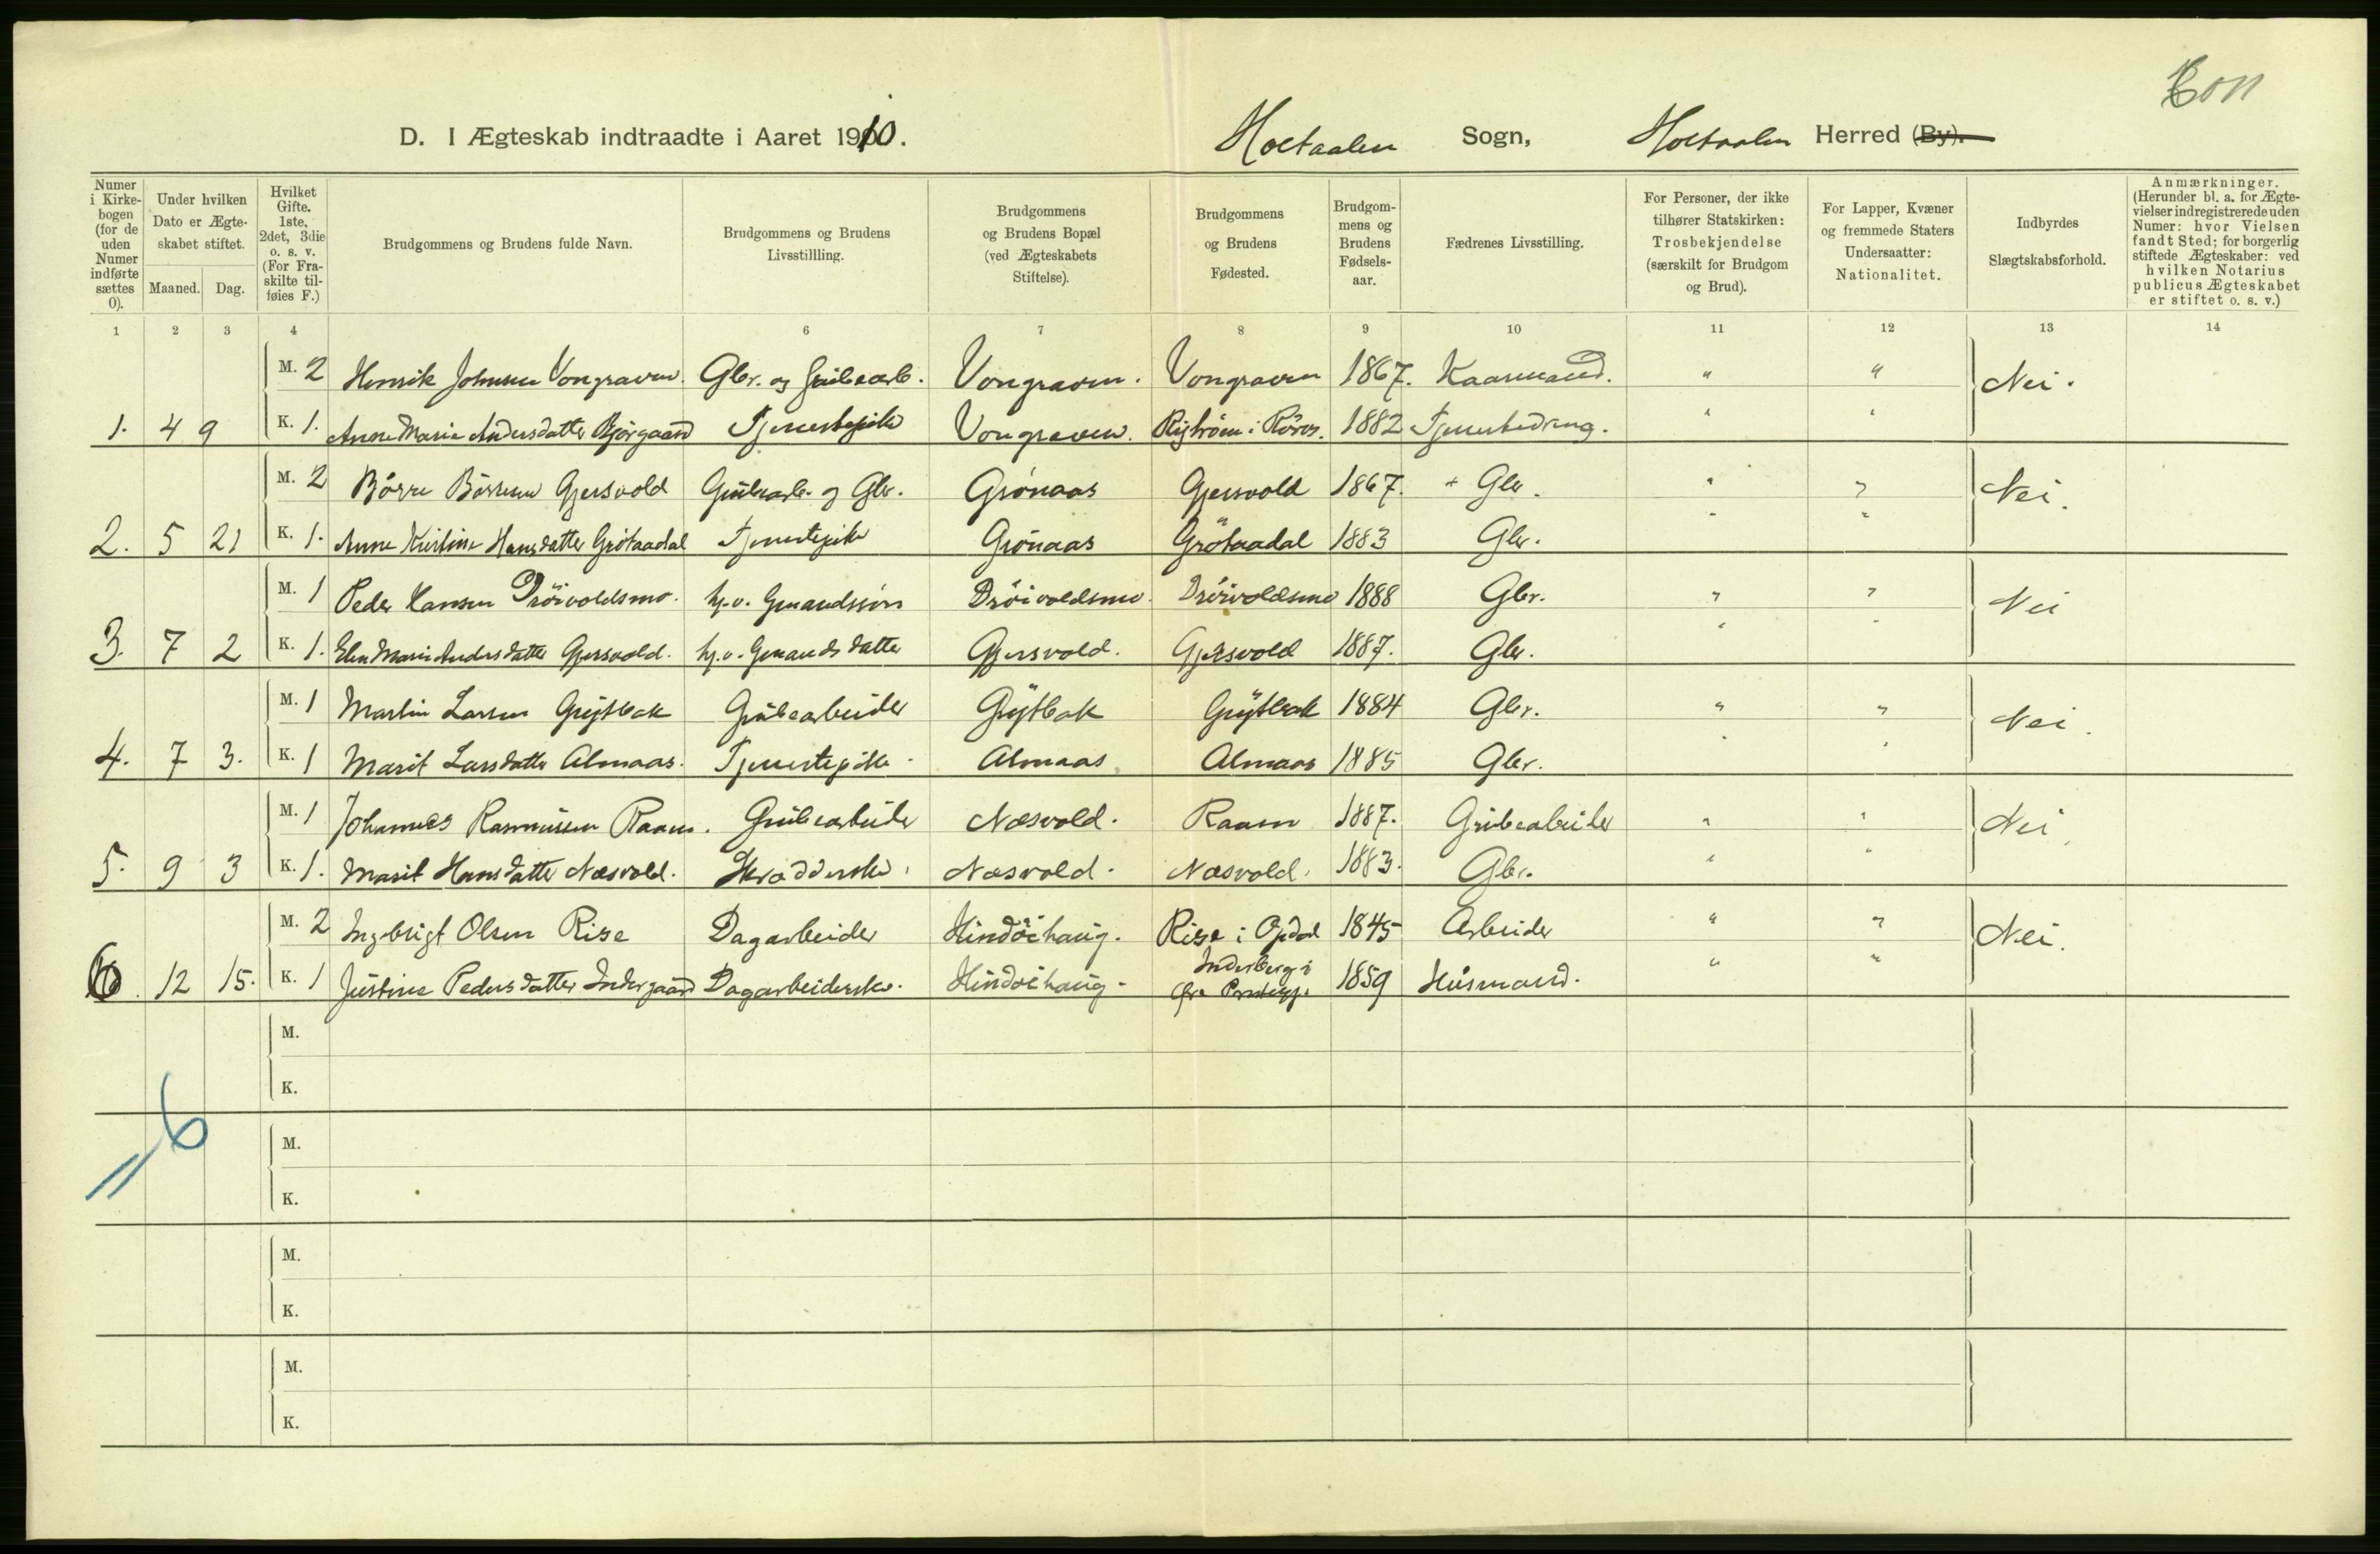 D. I Ægteskab indtraadte i Aaret 1910. Holtaalen Sogn, Holtaalen Herred (By).
Numer i Kirkebogen (for de uden Numer indførte sættes 0).
Under hvilken Dato er Ægteskabet stiftet.
Maaned. Dag.
Hvilket Gifte. 1ste, 2det, 3die o. s. v. (For Fraskilte tilføies F.)
Brudgommens og Brudens fulde Navn.
Brudgommens og Brudens Livsstillling.
Brudgommens og Brudens Bopæl (ved Ægteskabets Stiftelse).
Brudgommens og Brudens Fødested.
Brudgommens og Brudens Fødselsaar.
Fædrenes Livsstilling.
For Personer, der ikke tilhører Statskirken: Trosbekjendelse (særskilt for Brudgom og Brud).
For Lapper, Kvæner og fremmede Staters Undersaatter: Nationalitet.
Indbyrdes Slægtskabsforhold.
Anmærkninger. (Herunder bl. a. for Ægtevielser indregistrerede uden Numer: hvor Vielsen fandt Sted; for borgerlig stiftede Ægteskaber: ved hvilken Notarius publicus Ægteskabet er stiftet o. s. v.)
1 2 3 4 6 7 8 9 10 11 12 13 14
M. 2 Henrik Johnsen Vongraven. Gbr. og Grubearb. Vongraven. Vongraven 1867. Kaarmand. " " Nei.
1. 4 9 K. 1. Anne Marie Andersdatter Bjørgaard Tjenestepike Vongraven. i Röros. 1882 " "
M. 2 Børre Børresen Gjersvold Grubearb. og Gbr. Grönaas Gjersvold 1867. + Gbr. " " Nei.
2. 5 21 K. 1. Anne Kirstine Hansdatter Grötaadal Tjenestepike Grönaas Grötaadal 1883 Gbr. " "
M. 1 Peder Hansen Dröivoldsmo. hj.v. Gmandssön Dröivoldsmo. Dröivoldsmo 1888 Gbr. " " Nei
3. 7 2 K. 1. Elen Marie Andersdatter Gjersvold. hj.v. Gmandsdatter Gjersvold. Gjersvold 1887. Gbr. " "
M. 1 Martin Larsen Grytbak Grubearbeider Grytbak Grytbak 1884 Gbr. " " Nei.
4. 7 3. K. 1 Marit Larsdatter Almaas. Tjenestepike. Almaas. Almaas 1885 Gbr. " "
M. 1 Johannes Rasmussen Raaen. Grubearbeider Næsvold. Raaen 1887. Grubearbeider " " Nei.
5. 9 3 K. 1. Marit Hansdatter Næsvold. Skrædderske. Næsvold. Næsvold. 1883. Gbr. " "
M. 2 Ingebrigt Olsen Rise Dagarbeider Hindöihaug. Rise i Opdal 1845 Arbeider " " Nei.
6. 12 15. K. 1 Justine Pedersdatter Indergaard Dagarbeiderske. Hindöihaug. Inderberg i 1859 Husmand. " "
M.
K.
6
M.
K.
M.
K.
M.
K.